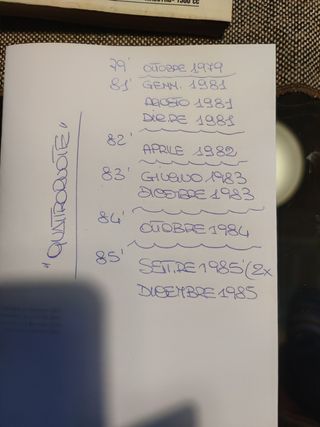 79' OTTOBRE 1979
81' GENN. 1981
AGOSTO 1981
DIC.RE 1981
82' APRILE 1982
83' GIUGNO 1983
DICEMBRE 1983
84' OTTOBRE 1984
85' SETT.RE 1985 (2x
DICEMBRE 1985
"QUATTRORUOTE"